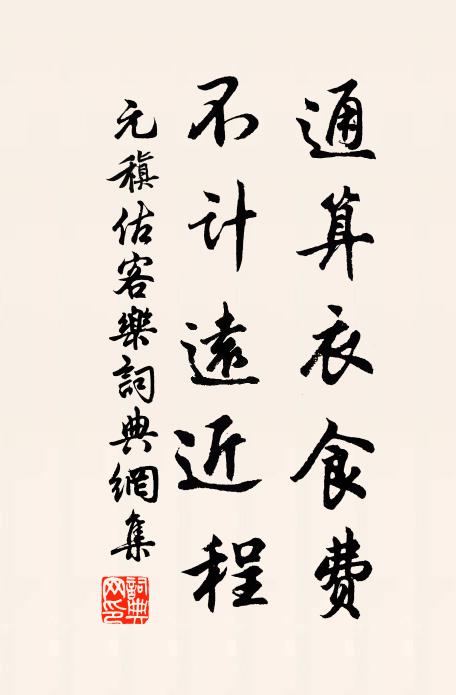 通算衣食費
不計遠近程
元稹估客樂詞典網集
詞典网印